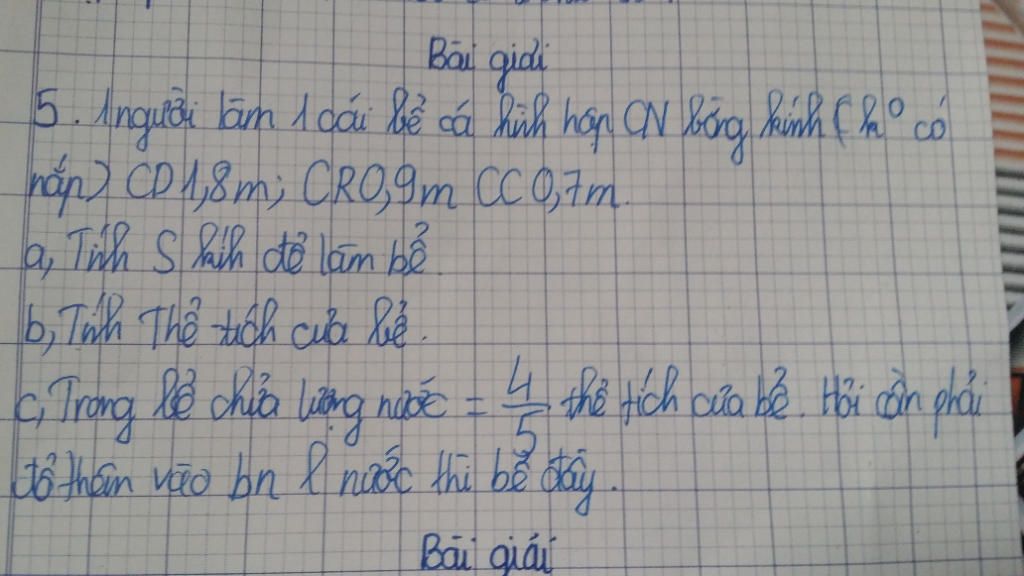 Bài giải
5. 1 người làm 1 cái bể cá hình hộp CN bằng kính (k⁰ có
nắp) CD 1,8m; CR 0,9m CC 0,7m.
a, Tính S kính để làm bể
b, Tính Thể tích của bể.
c, Trong bể chứa lượng nước = 4/5 thể tích của bể. Hỏi cần phải
đổ thêm vào bn l nước thì bể đầy.
Bài giải